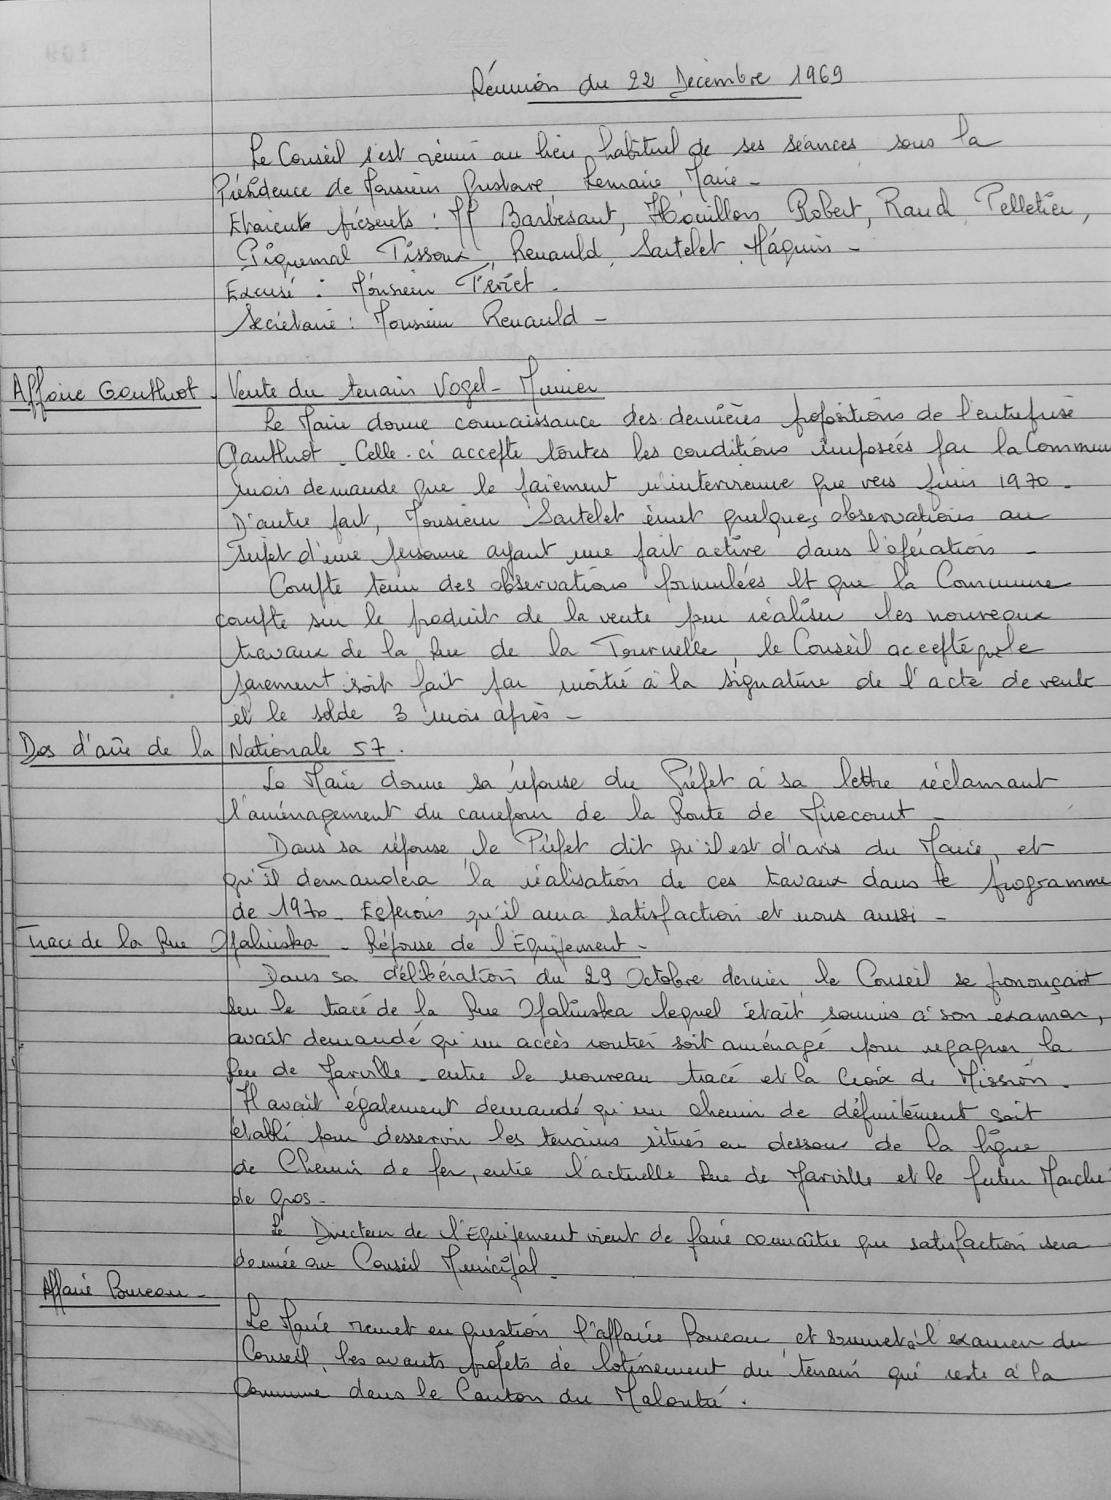 Réunion du 22 Décembre 1969
Le Conseil s'est réuni au lieu habituel de ses séances sous la
Présidence de Monsieur Gustave Lemaire, Maire -
Etaient présents : MM Barbesant, Houillon Robert, Raud, Pelletier,
Piquemal Tissoux, Renauld, Sartelet Háquin -
Excusé : Monsieur Tériet.
Secrétaire : Monsieur Renauld -
Affaire Gauthrot - Vente du terrain Vogel - Munier
Le Maire donne connaissance des dernières propositions de l'entreprise
Gauthrot. Celle-ci accepte toutes les conditions imposées par la Commune
mais demande que le paiement n'intervienne que vers juin 1970.
D'autre part, Monsieur Sartelet émet quelques observations au
sujet d'une personne ayant une part active dans l'opération -
Compte tenu des observations formulées et que la Commune
compte sur le produit de la vente pour réaliser les nouveaux
travaux de la Rue de la Tournelle, le Conseil accepte que le
paiement soit fait par moitié à la signature de l'acte de vente
et le solde 3 mois après -
Dos d'ane de la Nationale 57.
Le Maire donne sa réponse du Préfet à sa lettre réclamant
l'aménagement du carrefour de la Route de Mirecourt -
Dans sa réponse, le Préfet dit qu'il est d'avis du Maire, et
qu'il demandera la réalisation de ces travaux dans le programme
de 1970. Espérons qu'il aura satisfaction et nous aussi -
Tracé de la Rue Opalinska - Réponse de l'Equipement -
Dans sa délibération du 29 Octobre dernier, le Conseil se prononçait
sur le tracé de la Rue Opalinska lequel était soumis à son examen,
avait demandé qu'un accès routier soit aménagé pour regagner la
Rue de Jarville - entre le nouveau tracé et la Croix de Mission.
Il avait également demandé qu'un chemin de défruitement soit
établi pour desservir les terrains situés en dessous de la ligne
de Chemin de fer, entre l'actuelle Rue de Jarville et le futur Marché
de Gros -
Le Directeur de l'Equipement vient de faire connaître que satisfaction sera
donnée au Conseil Municipal.
Affaire Bureau -
Le Maire remet en question l'affaire Bureau et soumet à l'examen du
Conseil, les avants projets de lotissement du terrain qui reste à la
Commune dans le Canton du Malouté.